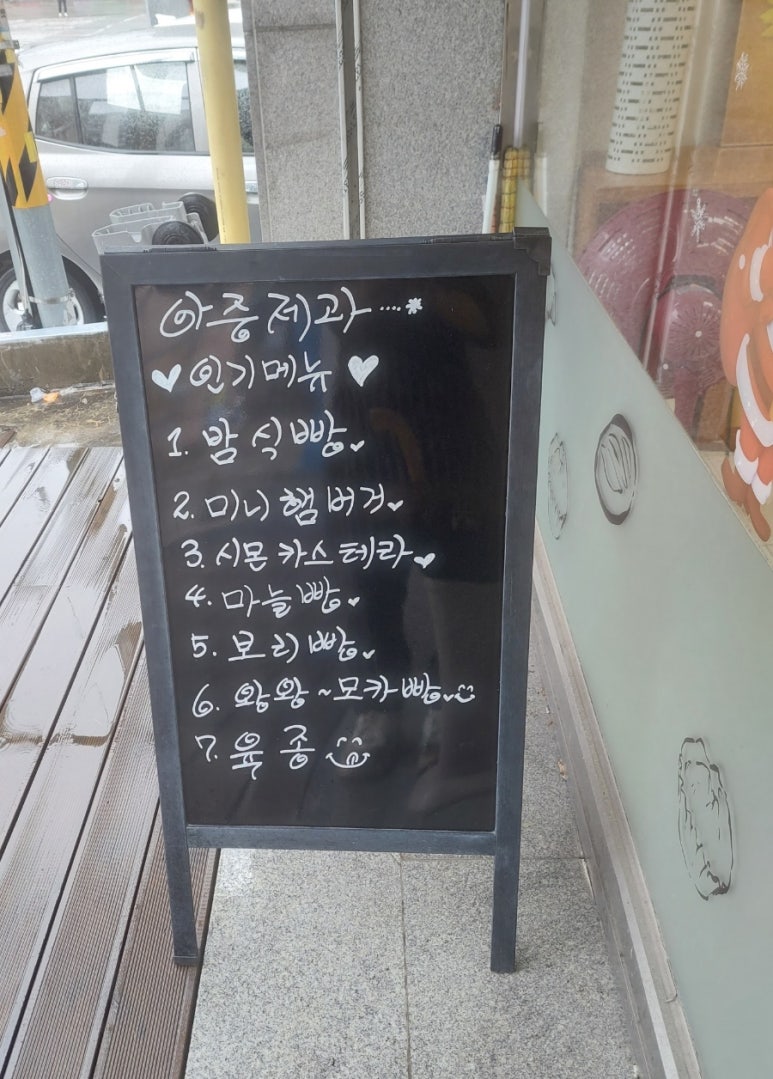 아중제과....*
♥인기메뉴♥
1. 밤식빵♥
2. 미니햄버거♥
3. 시몬카스테라♥
4. 마늘빵♥
5. 보리빵♥
6. 왕왕~모카빵♥
7. 육종